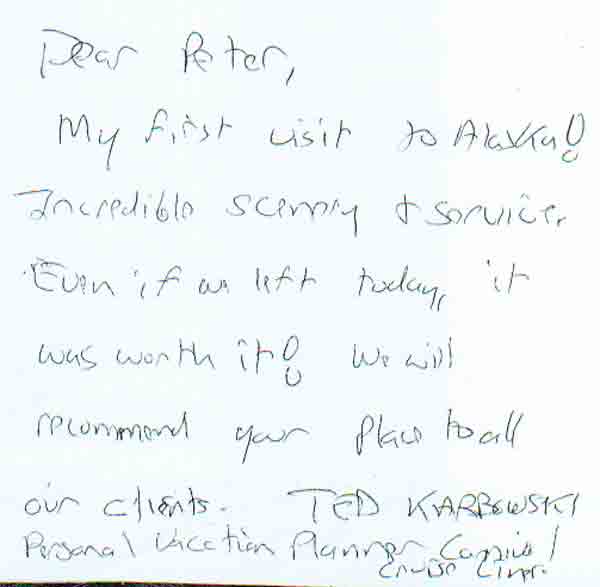 Dear Peter,
My first visit to Alaska!
Incredible scenery + service.
Even if we left today, it
was worth it! We will
recommend your place to all
our clients. TED KARBOWSKI
Personal Vacation Planner Carnival
Cruise Lines